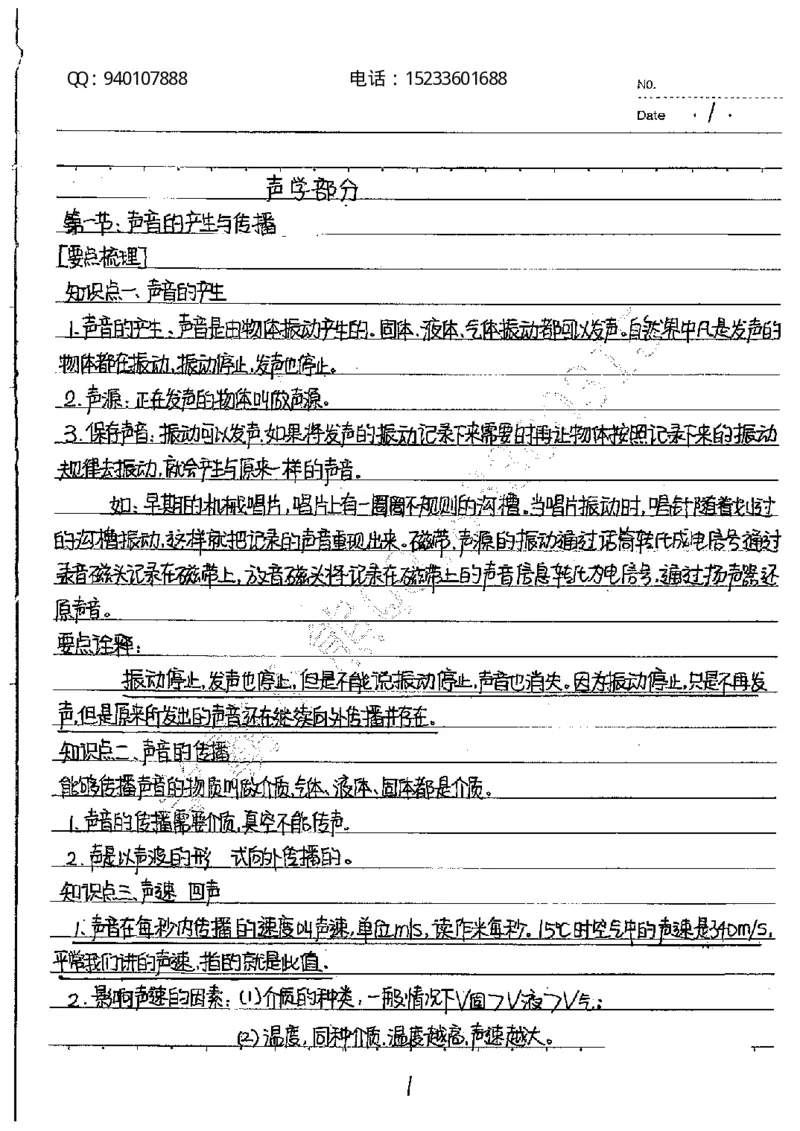 QQ：940107888 电话：15233601688
No.
Date · 1 ·
声学部分
第一节：声音的产生与传播
[要点梳理]
知识点一、声音的产生
1.声音的产生：声音是由物体振动产生的。固体、液体、气体振动都可以发声。自然界中凡是发声的
物体都在振动，振动停止，发声也停止。
2.声源：正在发声的物体叫做声源。
3.保存声音：振动可以发声，如果将发声的振动记录下来需要时再让物体按照记录下来的振动
规律去振动，就会产生与原来一样的声音。
如：早期的机械唱片，唱片上有一圈圈不规则的沟槽。当唱片振动时，唱针随着划过
的沟槽振动，这样就把记录的声音重现出来。磁带，声源的振动通过话筒转化成电信号通过
录音磁头记录在磁带上，放音磁头将记录在磁带上的声音信息转化为电信号，通过扬声器还
原声音。
要点诠释：
振动停止，发声也停止，但是不能说振动停止，声音也消失。因为振动停止，只是不再发
声，但是原来所发出的声音还在继续向外传播并存在。
知识点二、声音的传播
能够传播声音的物质叫做介质，气体、液体、固体都是介质。
1.声音的传播需要介质，真空不能传声。
2.声是以声波的形 式向外传播的。
知识点三、声速 回声
1.声音在每秒内传播的速度叫声速，单位m/s，读作米每秒。15℃时空气中的声速是340m/s，
平常我们讲的声速，指的就是此值。
2.影响声速的因素：(1)介质的种类，一般情况下V固>V液>V气；
(2)温度，同种介质，温度越高，声速越大。
1